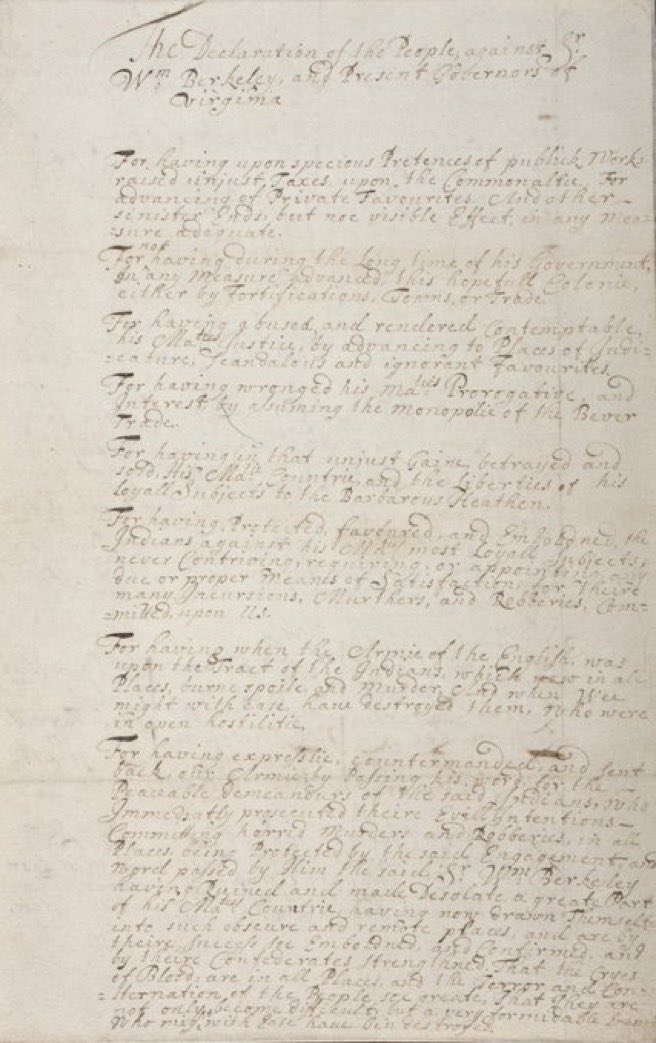 The Declaration of the People, against Sr
Wm Berkeley, and Present Governors of
Virginia
For having upon specious Pretences of publick Works
raised unjust Taxes, upon the Commonaltie, For
advancing of Private Favourites, And other
sinister Ends, but noe visible Effect, in any Mea=
=sure adequate.
For not having during the Long time of his Government,
in any Measure Advanced, this hopefull Colonie,
either by Fortifications, Towns, or Trade
For having abused, and rendered Contemptable,
his Maties Justice, by advancing to Places of Judi=
=cature, Scandalous and ignorant favourites.
For having wronged his Maties Prorogative, and
Interest by assuming the monopolie of the Bever
Trade.
For having in that unjust Gaine, betrayed and
sold, His Maties Countrie, and the Liberties of his
Loyall Subjects to the Barbarous Heathen.
For having, Protected, favoured, and Emboldned, the
Indians against his Maties most Loyall Subjects;
never Contriving, requiring, or appointing any
due or proper Means of Satisfaction, for theire
many Incursions, Murthers, and Robberies, Com=
=mitted, upon Us.
For having when the Armie of the English, was
upon the Tract of the Indians, which now in all
Places, burne spoile and Murder, And when Wee
might with Ease, have destroyed them, who were
in open hostilitie.
For having expresslie, Countermanded, and sent
back, our Armie, by Passing his word, for the
Peaceable demeanours of the said Indians, Who
Immediatly prosecuted theire Evill Intentions
Committing horrid Murders and Robberies, in all
Places, being Protected by the said Engagement and
word passed by Him the said Sr Wm Berkeley
having Ruined and made Desolate a great Part
of his Maties Countrie, having now drawn Themselves
into such obscure and remote places, and are by
theire success soe Emboldned, and Confirmed, and
by theire Confederates strengthned, That the Cryes
of Blood, are in all Places, and the Terror and Con=
=sternation, of the People soe great, That They are
not only become difficult, but a very formidable Enemie
Who might with Ease have bin destroyed.